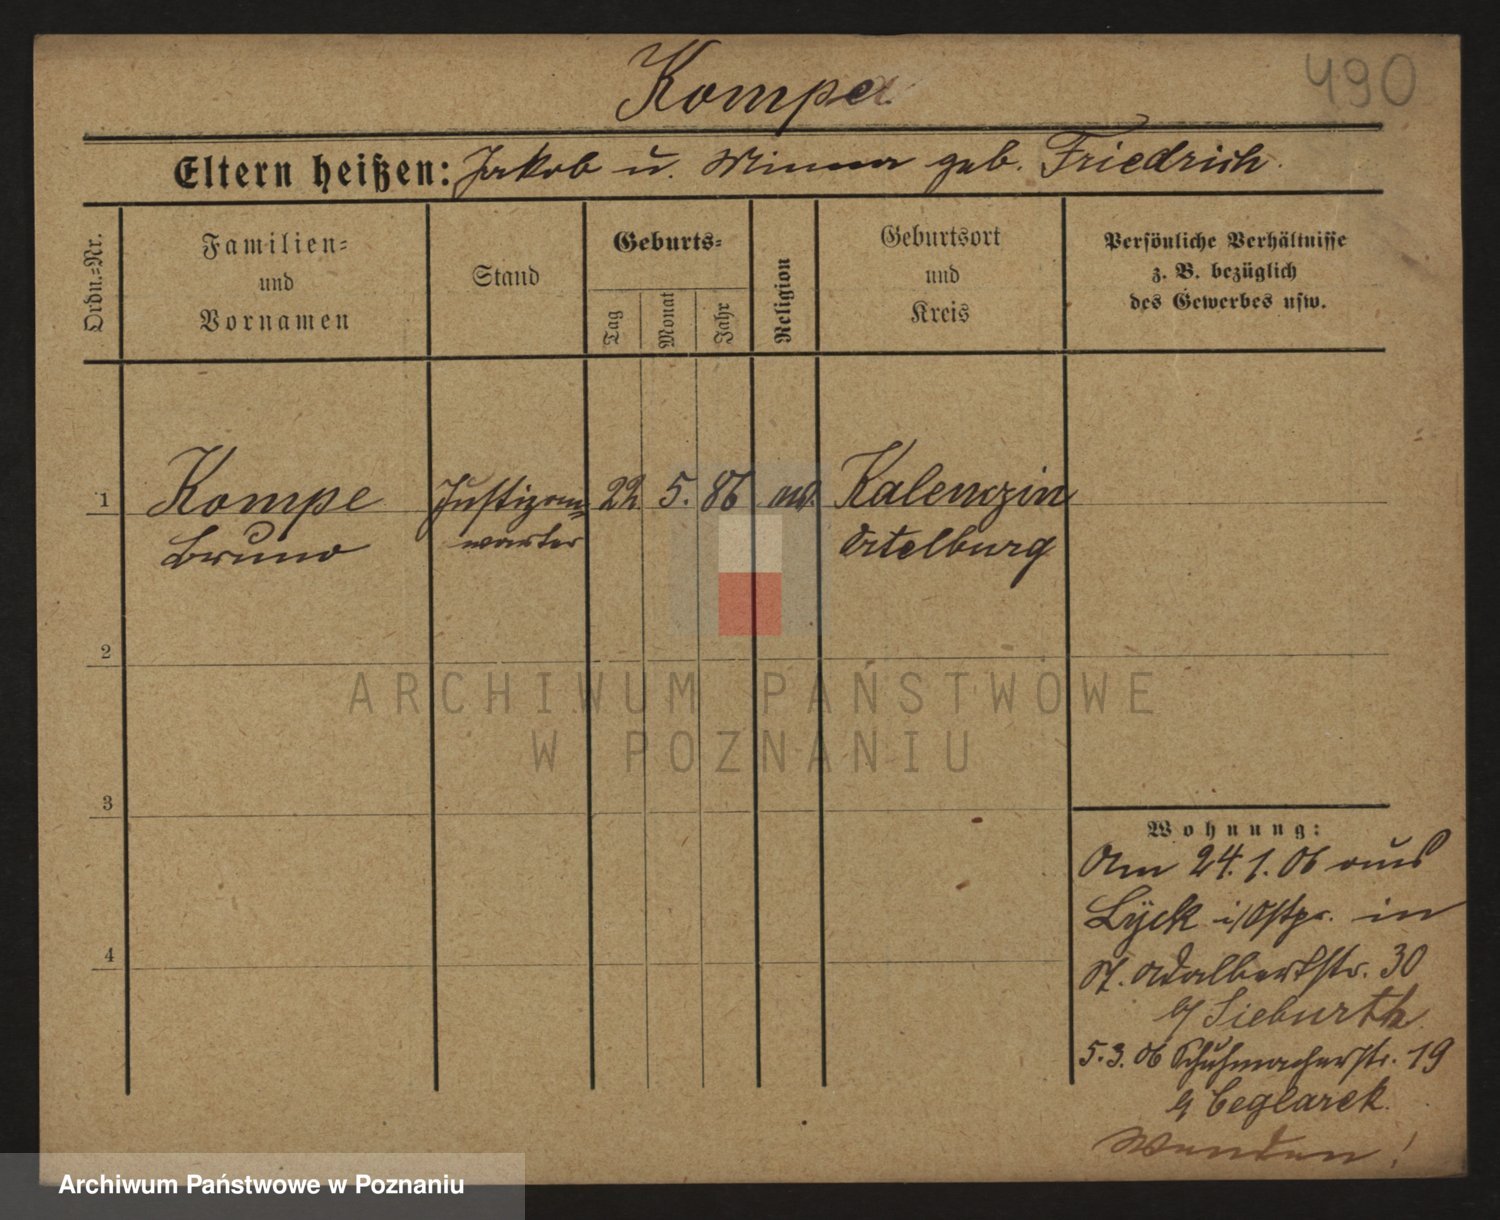 Kompa
490
Eltern heißen: Jakob u. Minna geb. Friedrich.
Ordn.-Nr.
Familien-
und
Vornamen
Stand
Geburts-
Tag
Monat
Jahr
Religion
Geburtsort
und
Kreis
Persönliche Verhältnisse
z. B. bezüglich
des Gewerbes usw.
1
Kompe
Bruno
Justizan-
warter
22. 5. 86
Kalenczin
Ortelburg
2
3
4
Wohnung:
Am 24.1.06 aus
Lyck i/Ostpr. in
St. Adalbertstr. 30
b/ Sieburth
5.3.06 Schuhmacherstr. 19
b/ Ceglarek.
Wenden!
ARCHIWUM PAŃSTWOWE
W POZNANIU
Archiwum Państwowe w Poznaniu